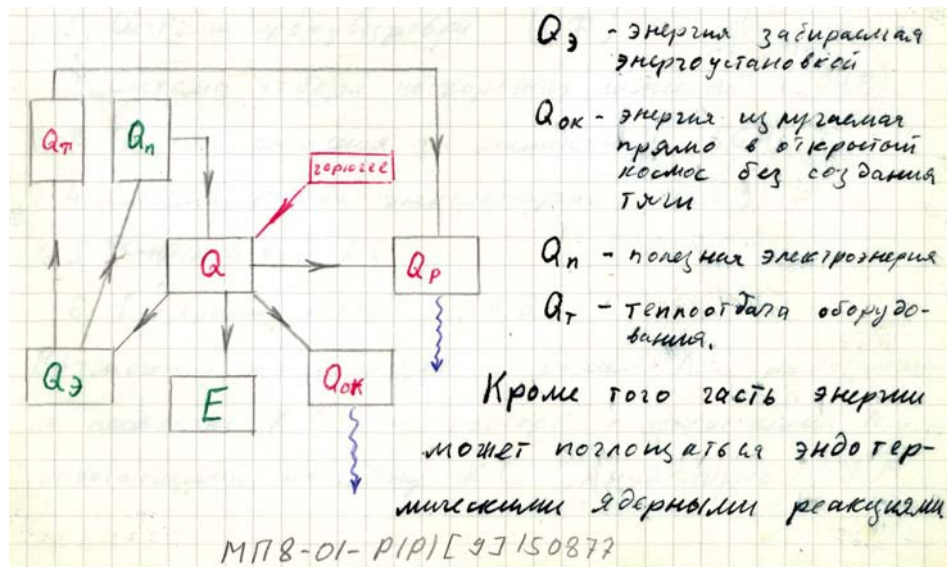 Qт
Qп
горючее
Q
Qр
Qэ
E
Qок
Qэ - энергия забираемая
энергоустановкой
Qок - энергия излучаемая
прямо в открытый
космос без создания
тяги
Qп - полезная электроэнерия
Qт - теплоотдача оборудо-
вания.
Кроме того часть энергии
может поглощаться эндотер-
мическими ядерными реакциями
МП8-01-Р(Р)[9]150877